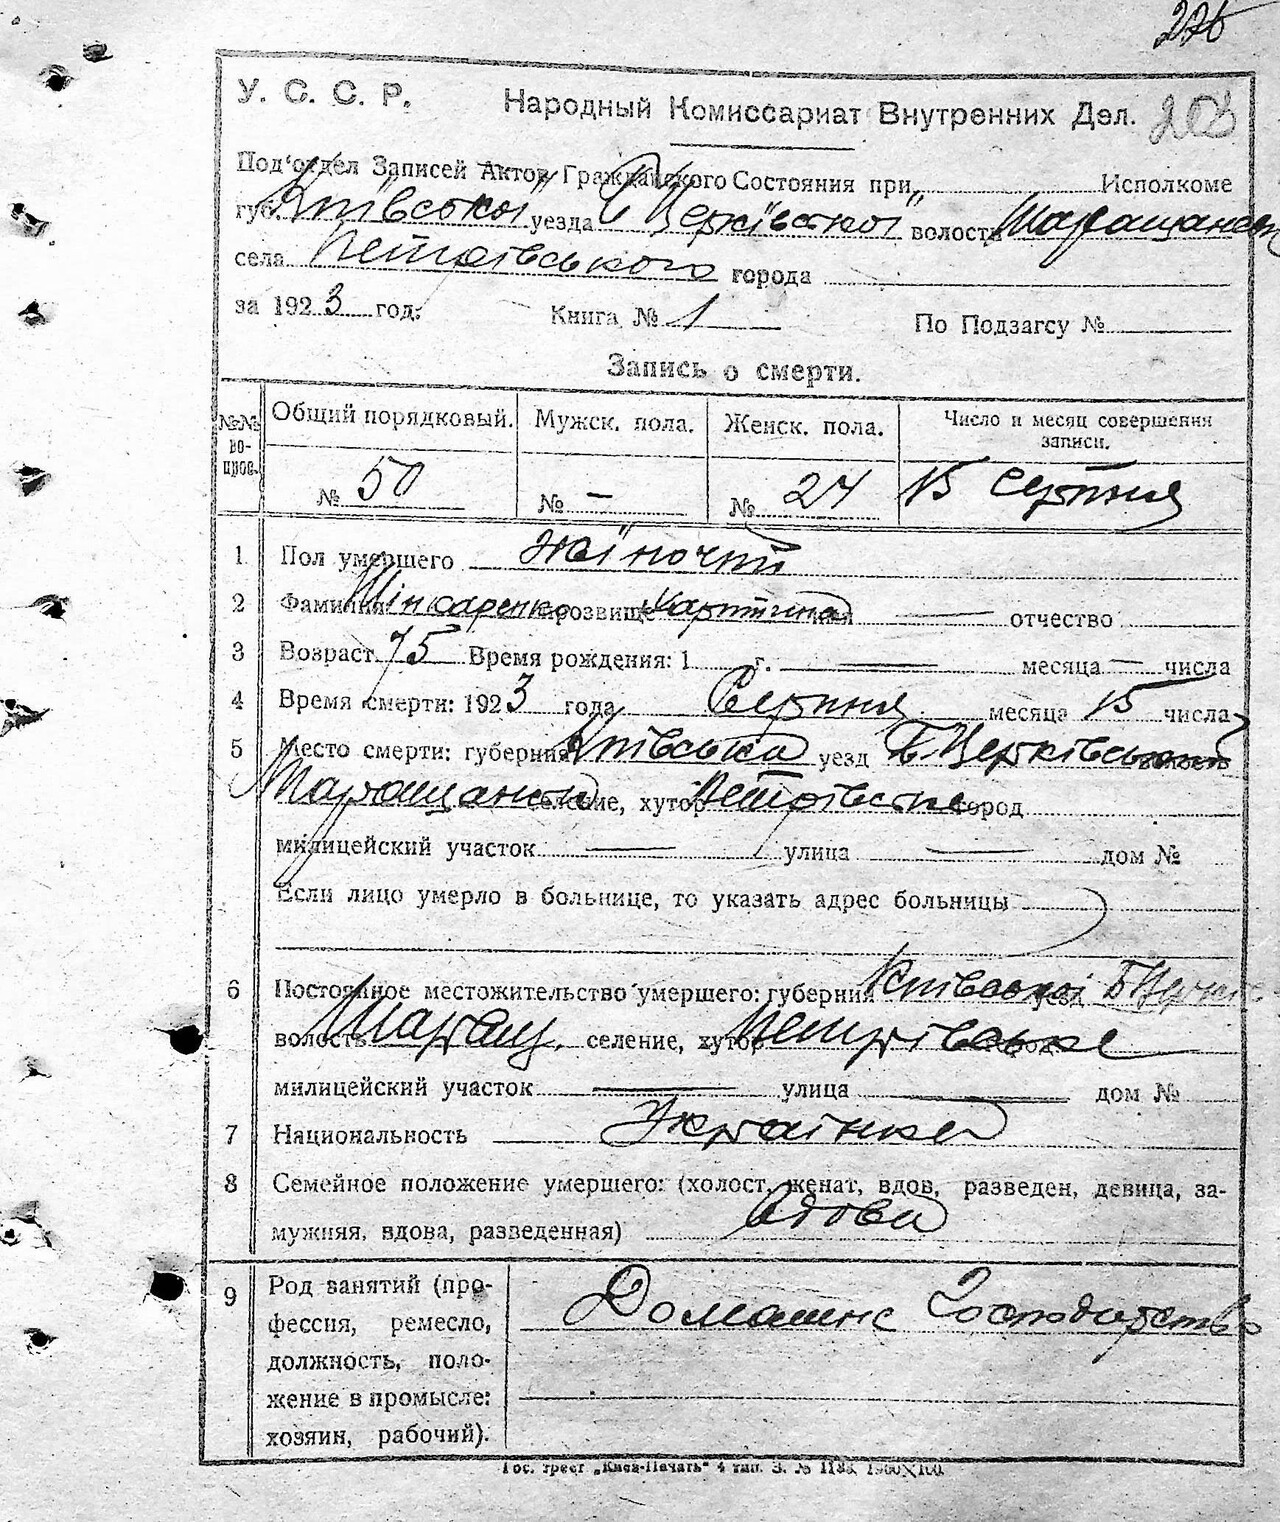 У. С. С. Р. Народный Комиссариат Внутренних Дел. 203
Под'отдел Записей Актов Гражданского Состояния при Исполкоме
губ. Київської уезда Б Церківської волости Таращанськ
села Петрівського города
за 1923 год. Книга № 1 По Подзагсу №
Запись о смерти.
№№ вопров. Общий порядковый. Мужск. пола. Женск. пола. Число и месяц совершения записи.
№ 50 № — № 24 15 Серпня
1 Пол умершего жіночій
2 Фамилия Шінкаренко прозвище отчество
3 Возраст 75 Время рождения: 1 г. — месяца — числа
4 Время смерти: 1923 года Серпня месяца 15 числа
5 Место смерти: губерния Київська уезд Б Церківський
Таращанськ селение, хутор Петрівське город
милицейский участок — улица — дом №
Если лицо умерло в больнице, то указать адрес больницы
6 Постоянное местожительство умершего: губерния Київської уезд Б Церк
волость Таращ. селение, хутор Петрівське город
милицейский участок — улица — дом №
7 Национальность Українка
8 Семейное положение умершего: (холост, женат, вдов, разведен, девица, за-
мужняя, вдова, разведенная) Вдова
9 Род занятий (про-
фессия, ремесло, Домашнє Господарство
должность, поло-
жение в промысле:
хозяин, рабочий).
Гос. трест „Киев-Печать" 4 тип. З. № 1188, 1900×100.